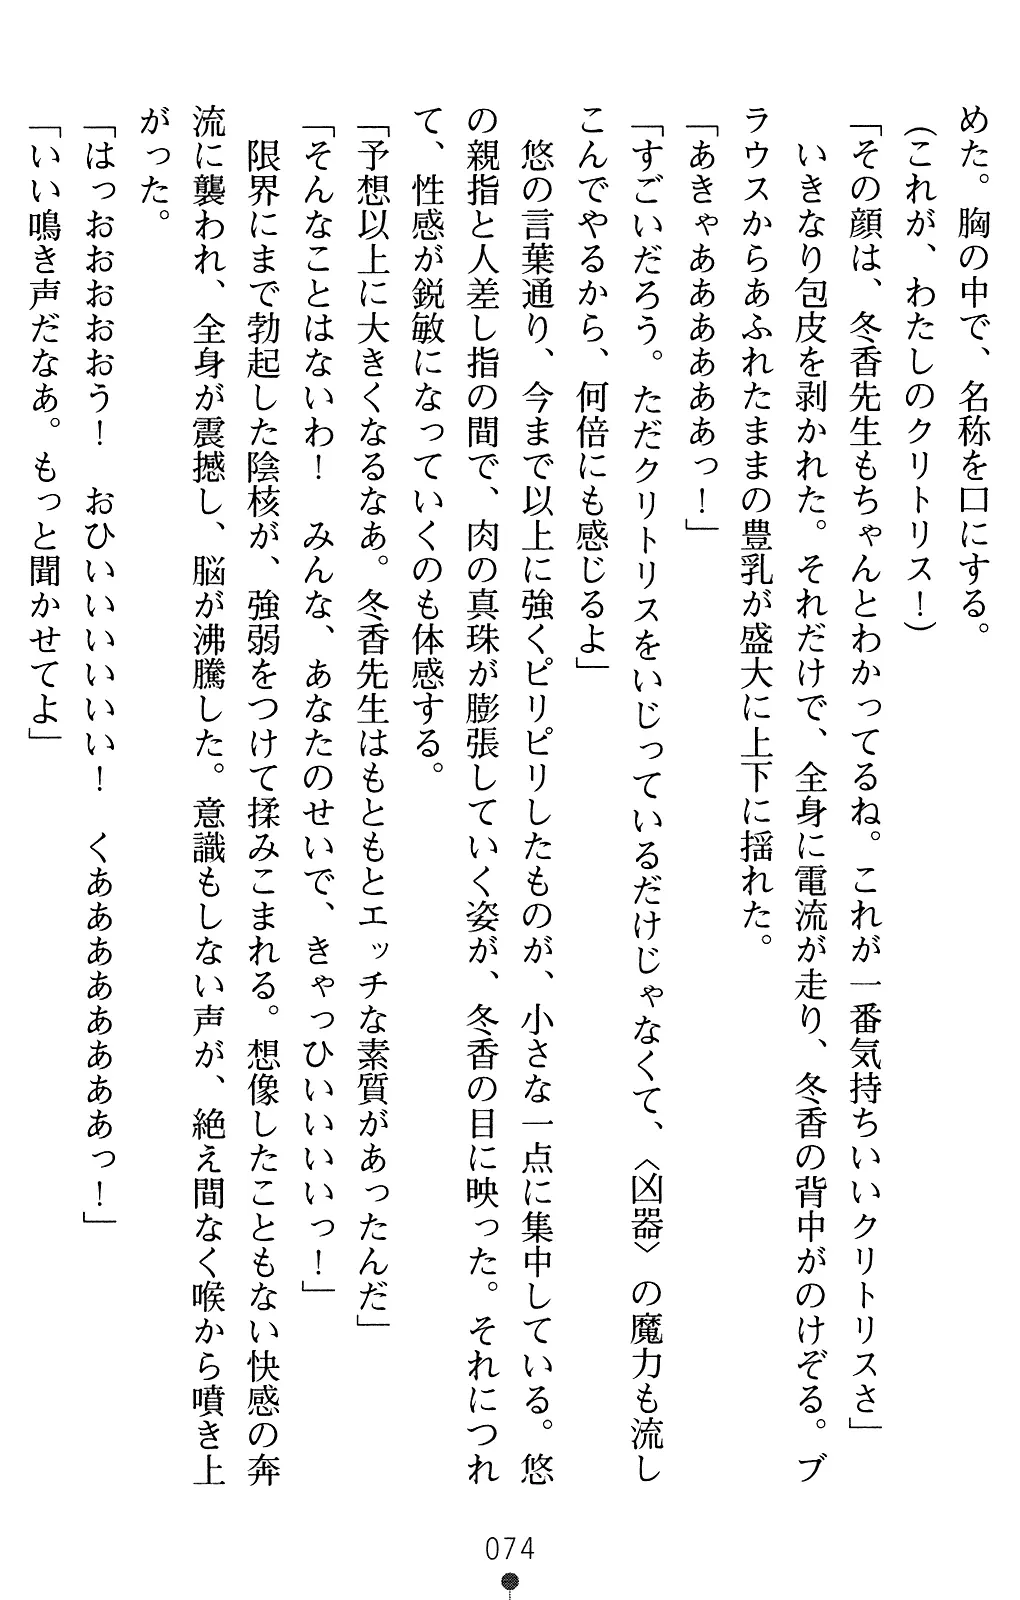 めた。胸の中で、名称を口にする。
（これが、わたしのクリトリス！）
「その顔は、冬香先生もちゃんとわかってるね。これが一番気持ちいいクリトリスさ」
いきなり包皮を剥かれた。それだけで、全身に電流が走り、冬香の背中がのけぞる。ブ
ラウスからあふれたままの豊乳が盛大に上下に揺れた。
「あきゃああああああっ！」
「すごいだろう。ただクリトリスをいじっているだけじゃなくて、〈凶器〉の魔力も流し
こんでやるから、何倍にも感じるよ」
悠の言葉通り、今まで以上に強くピリピリしたものが、小さな一点に集中している。悠
の親指と人差し指の間で、肉の真珠が膨張していく姿が、冬香の目に映った。それにつれ
て、性感が鋭敏になっていくのも体感する。
「予想以上に大きくなるなあ。冬香先生はもともとエッチな素質があったんだ」
「そんなことはないわ！　みんな、あなたのせいで、きゃっひいいいいっ！」
限界にまで勃起した陰核が、強弱をつけて揉みこまれる。想像したこともない快感の奔
流に襲われ、全身が震撼し、脳が沸騰した。意識もしない声が、絶え間なく喉から噴き上
がった。
「はっおおおおおう！　おひいいいいいい！　くああああああああっ！」
「いい鳴き声だなあ。もっと聞かせてよ」
074